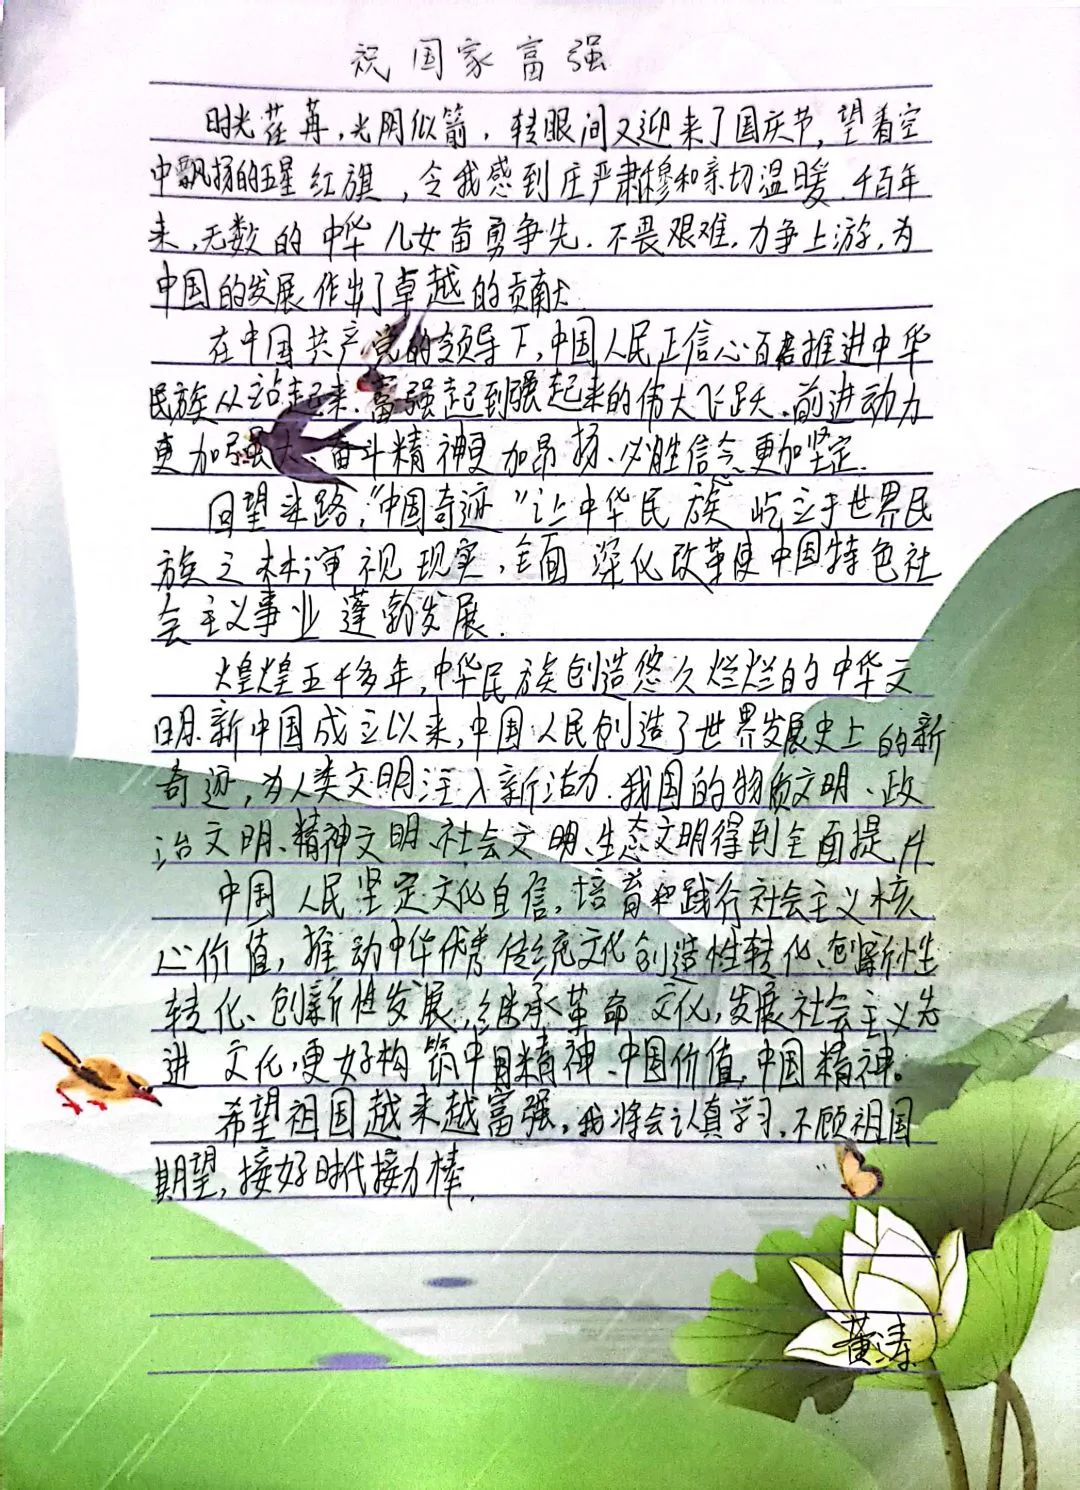 祝国家富强
时光荏苒,光阴似箭,转眼间又迎来了国庆节,望着空
中飘扬的五星红旗,令我感到庄严肃穆和亲切温暖.千百年
来,无数的中华儿女奋勇争先.不畏艰难,力争上游,为
中国的发展作出了卓越的贡献.
在中国共产党的领导下,中国人民正信心百倍推进中华
民族从站起来、富强起到强起来的伟大飞跃.前进动力
更加强大、奋斗精神更加昂扬、必胜信念更加坚定.
回望来路,“中国奇迹”让中华民族屹立于世界民
族之林.审视现实,全面深化改革使中国特色社
会主义事业蓬勃发展.
煌煌五千多年,中华民族创造悠久烂烂的中华文
明.新中国成立以来,中国人民创造了世界发展史上的新
奇迹,为人类文明注入新活力.我国的物质文明、政
治文明、精神文明、社会文明、生态文明得到全面提升.
中国人民坚定文化自信,培育和践行社会主义核
心价值,推动中华优秀传统文化创造性转化、创新性
转化、创新性发展,继承革命文化,发展社会主义先
进文化,更好构筑中国精神、中国价值,中国精神。
希望祖国越来越富强,我将会认真学习,不顾祖国
期望,接好时代接力棒.
黄涛